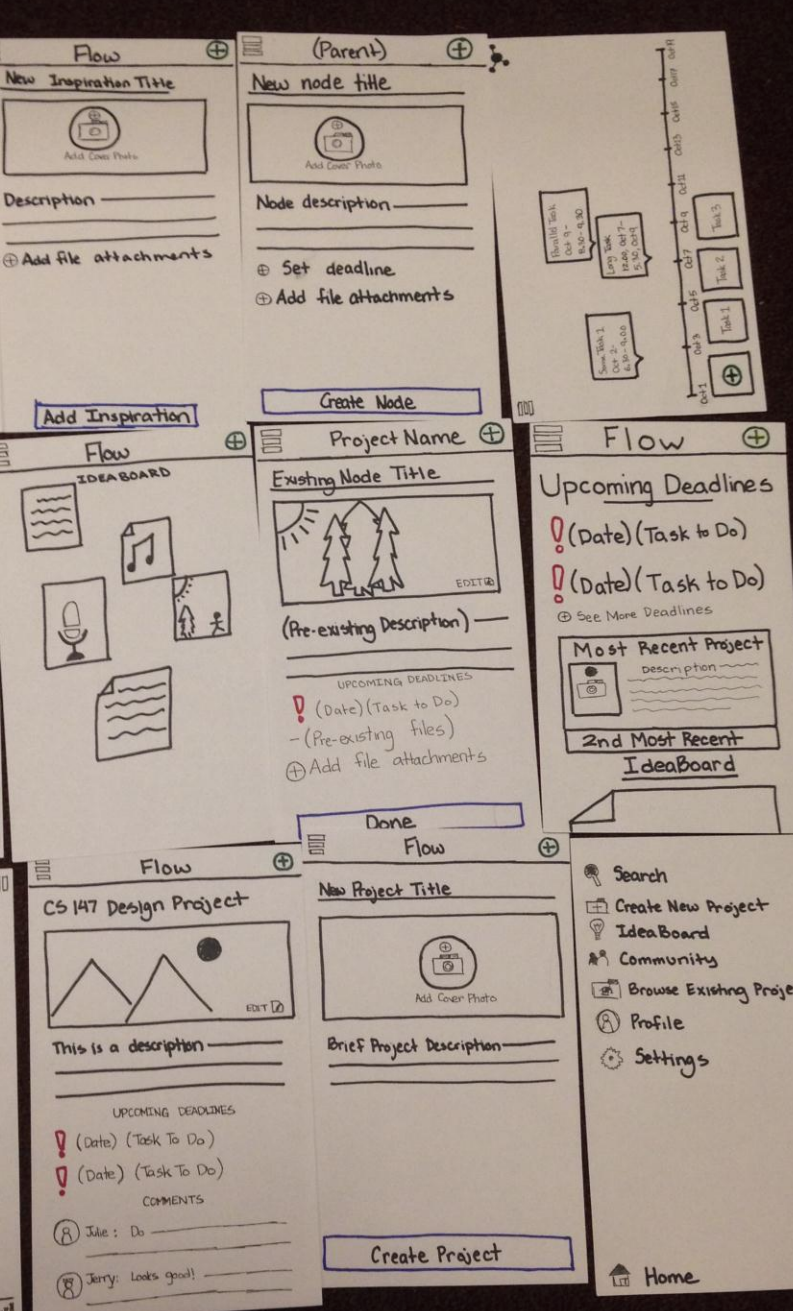 Flow
New Inspiration Title
Add Cover Photo
Description
Add file attachments
Add Inspiration
(Parent)
New node title
Add Cover Photo
Node description
Set deadline
Add file attachments
Create Node
Parallel Task
Oct 9 -
8.30 - 9.30
Long Task
12.00, Oct 7 -
5.30, Oct 9
Some Task 1
Oct 2 -
Oct 1
Oct 3
Oct 5
Oct 7
Oct 9
Oct 11
Oct 13
Oct 15
Oct 17
Task 1
Task 2
Task 3
Flow
IDEABOARD
Project Name
Existing Node Title
EDIT
(Pre-existing Description)
UPCOMING DEADLINES
! (Date) (Task to Do)
- (Pre-existing files)
Add file attachments
Done
Flow
Upcoming Deadlines
! (Date) (Task to Do)
! (Date) (Task to Do)
See More Deadlines
Most Recent Project
Description
2nd Most Recent
IdeaBoard
Flow
CS 147 Design Project
EDIT
This is a description
UPCOMING DEADLINES
! (Date) (Task To Do)
! (Date) (Task To Do)
COMMENTS
Julie: Do
Jerry: Looks good!
Flow
New Project Title
Add Cover Photo
Brief Project Description
Create Project
Search
Create New Project
IdeaBoard
Community
Browse Existing Proje
Profile
Settings
Home